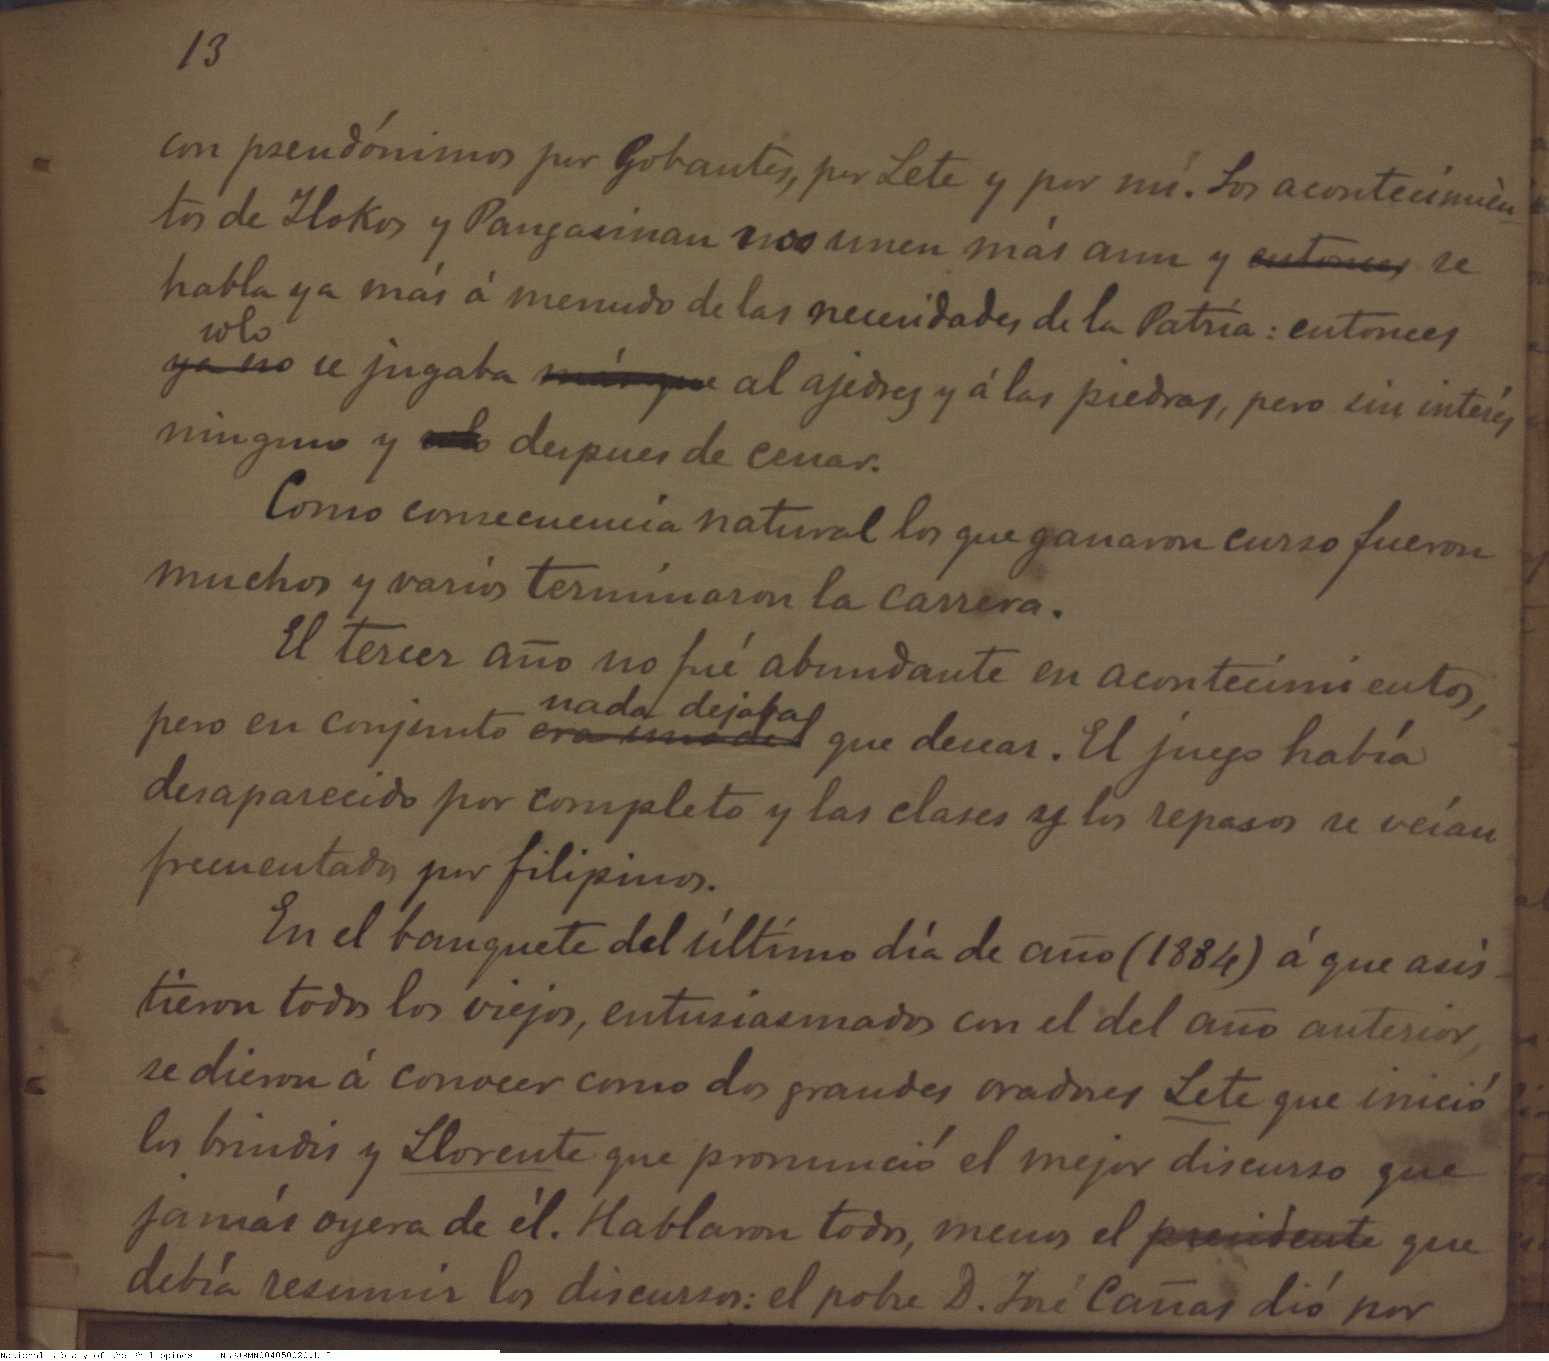 13
con pseudónimos por Gobantes, por Lete y por mí. Los acontecimien
tos de Ilokos y Pangasinan nos unen más aun y entonces se
habla ya más á menudo de las necesidades de la Patria: entonces
solo
ya no se jugaba más que al ajedrez y á las piedras, pero sin interés
ninguno y solo despues de cenar.
Como consecuencia natural los que ganaron curso fueron
muchos y varios terminaron la carrera.
El tercer año no fué abundante en acontecimientos,
nada dejaba
pero en conjunto era que desear. El juego había
desaparecido por completo y las clases y los repasos se veían
frecuentados por filipinos.
En el banquete del último día de año (1884) á que asis-
tieron todos los viejos, entusiasmados con el del año anterior,
se dieron á conocer como dos grandes oradores Lete que inició
los brindis y Llorente que pronunció el mejor discurso que
jamás oyera de él. Hablaron todos, menos el presidente que
debía resumir los discursos: el pobre D. José Cañas dió por
National Library of the Philippines